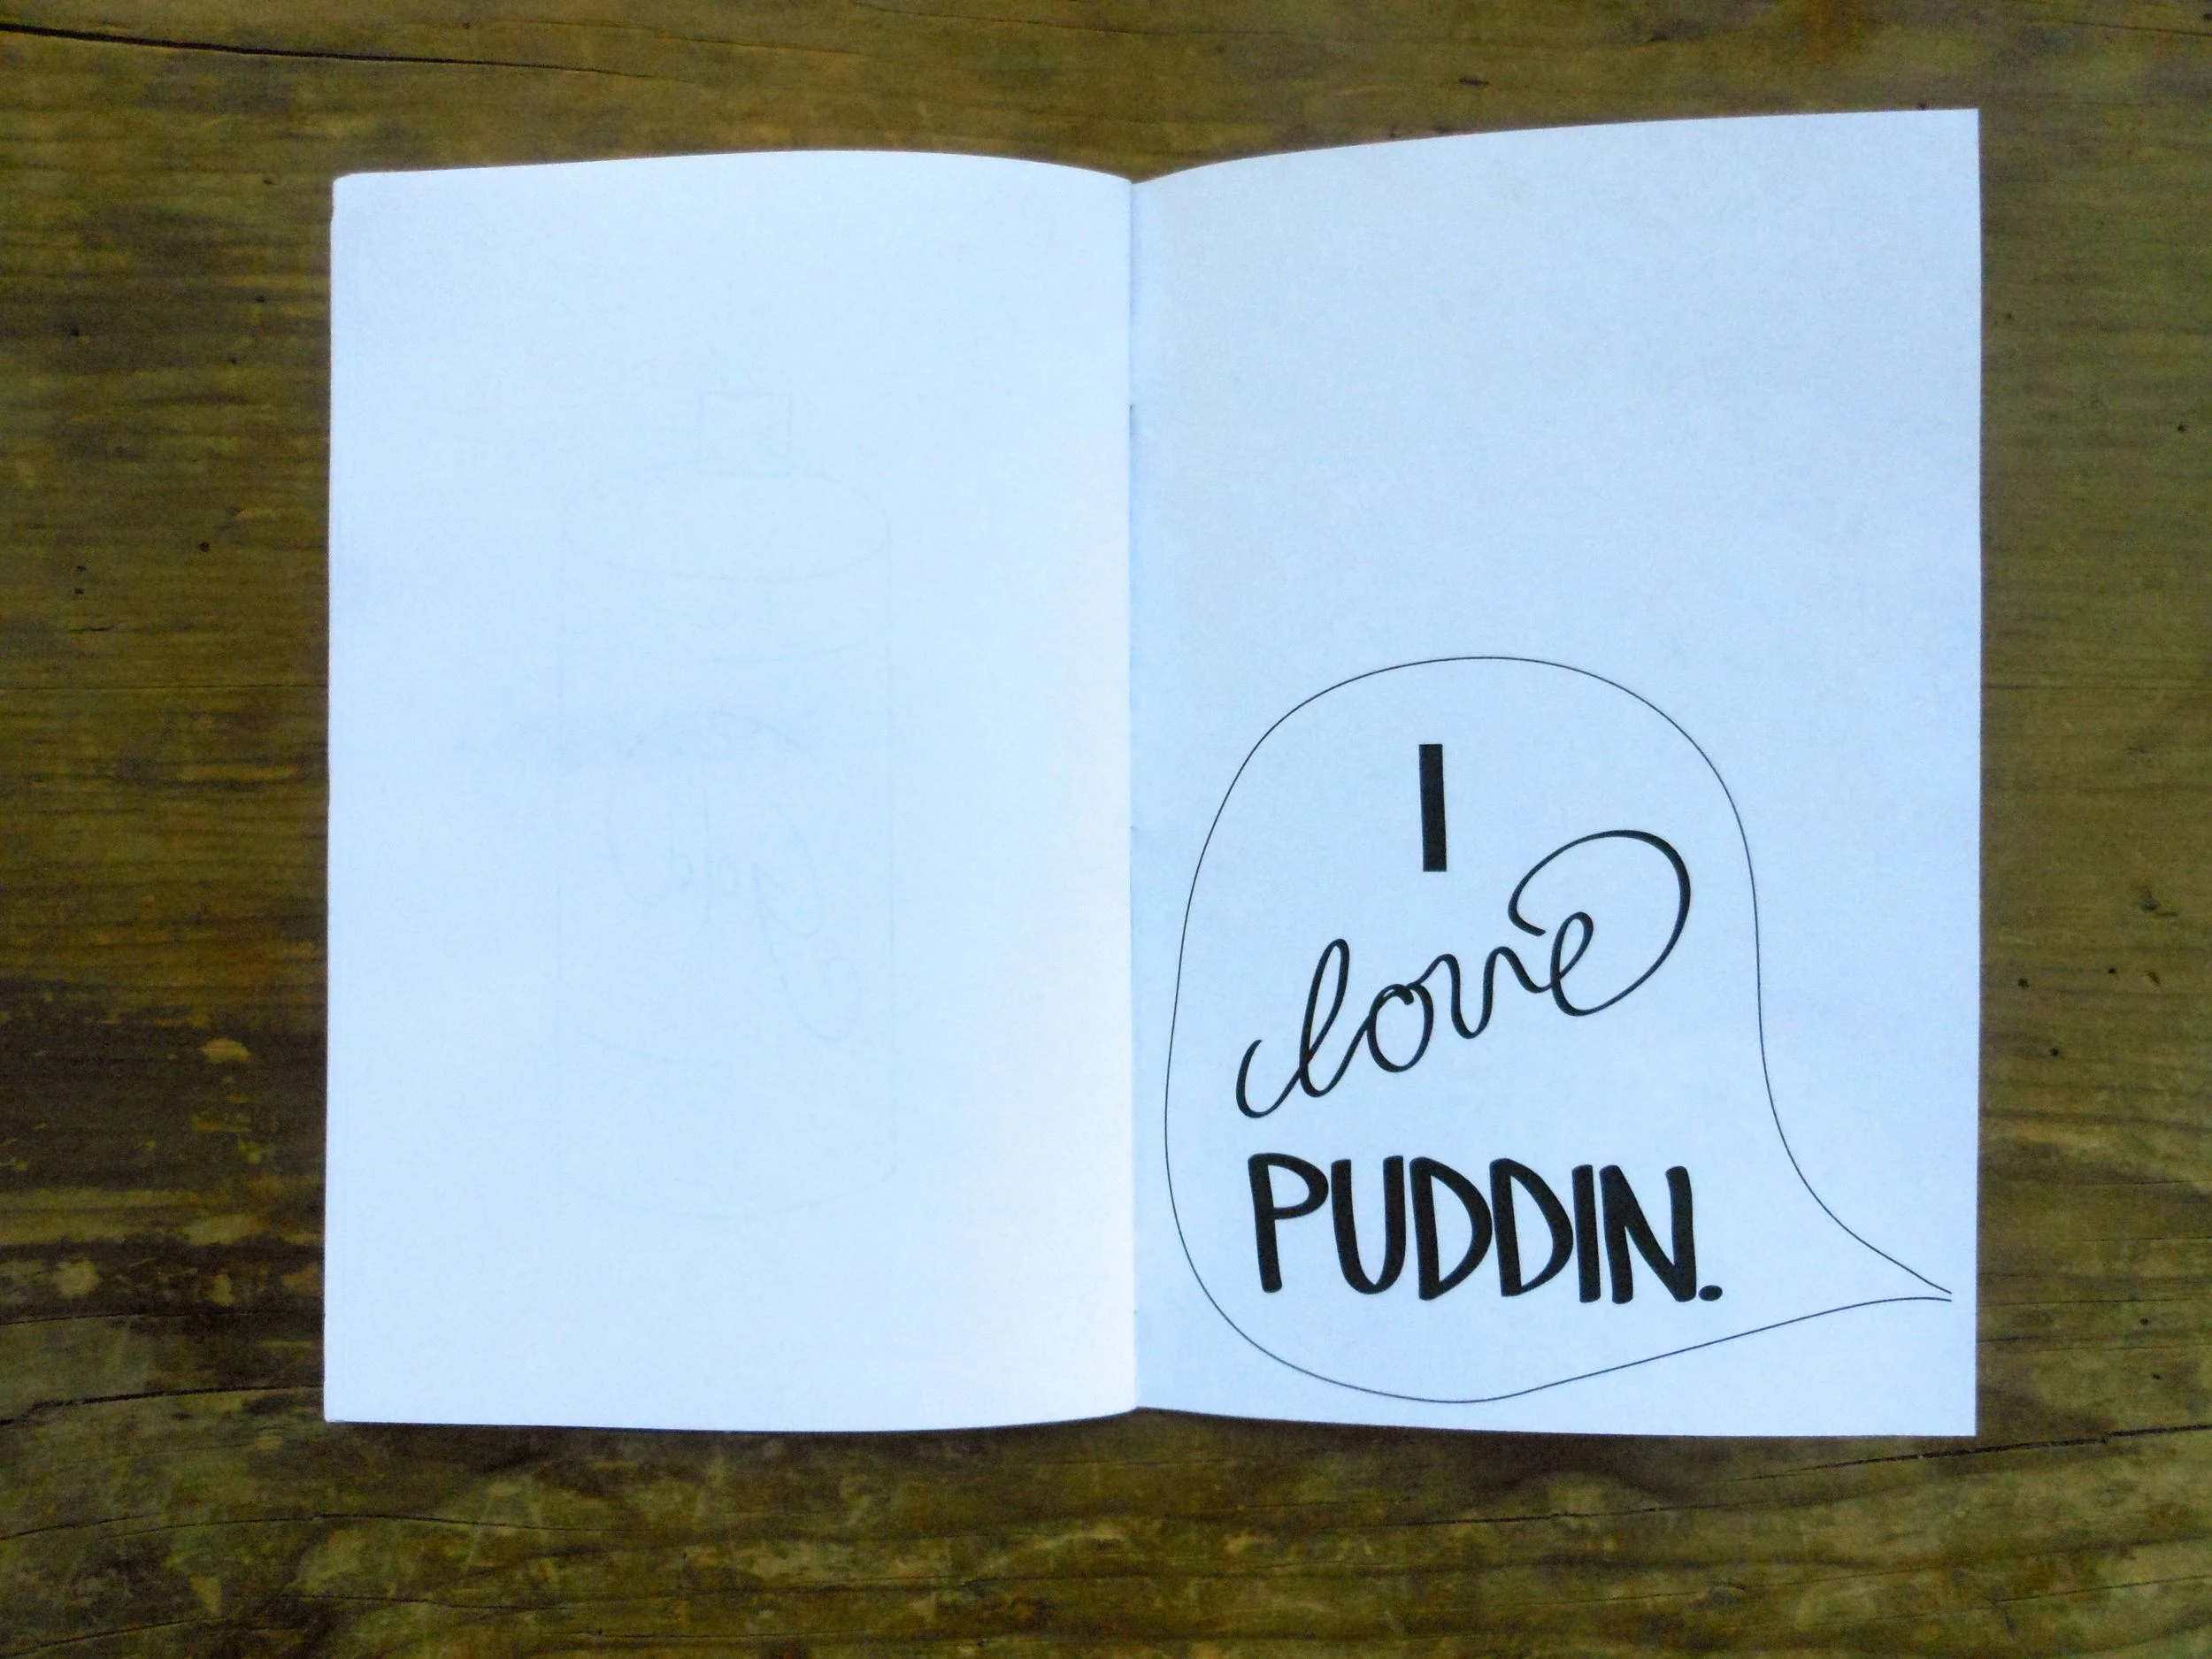 I
love
PUDDIN.